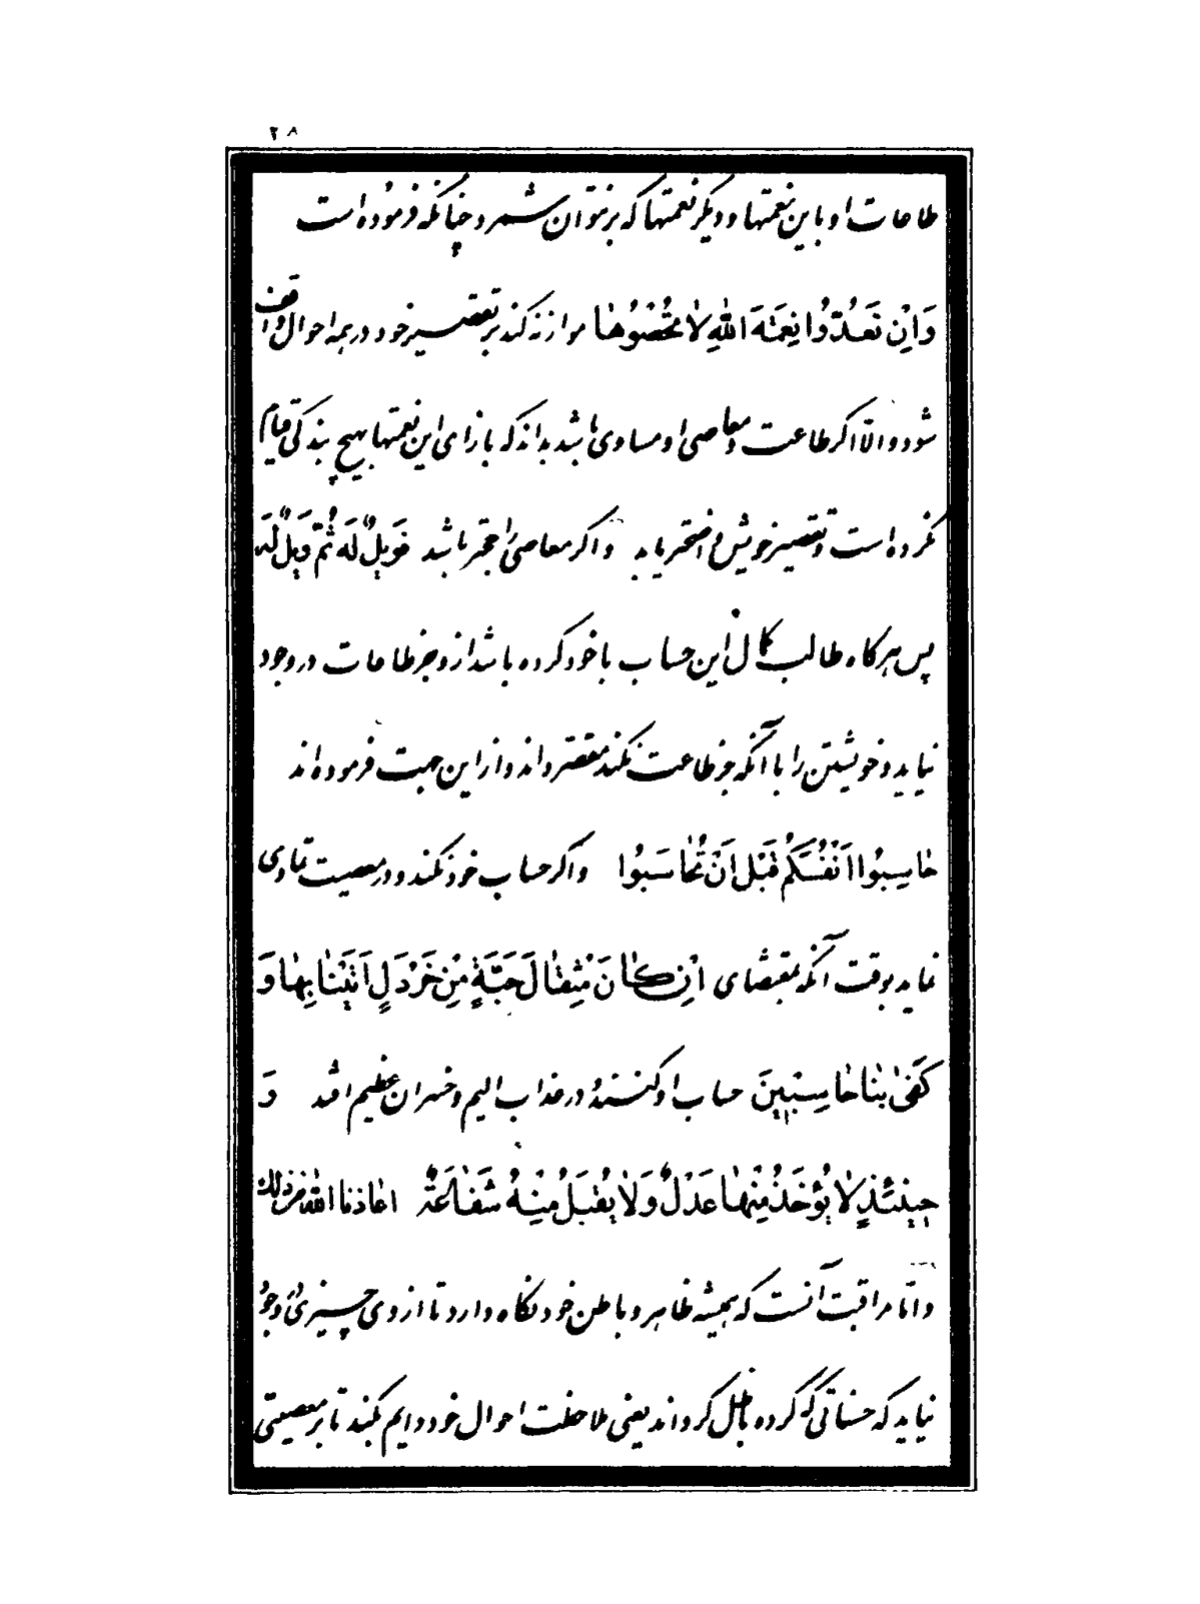 ۲۸
طاعات او با این نعمتها و دیگر نعمتها که برنتوان شمرد چنانکه فرموده است
وَاِنْ تَعُدُّوا نِعْمَةَ اللهِ لا تُحْصُوها موازنه کند بر تقصیر خود در همه احوال واقف
شود و الا اکر طاعت و معاصی او مساوی باشد بداند که بازای این نعمتها بهیچ بندکی قیام
نکرده است و تقصیر خویش واضحتر یابد و اکر معاصی راجحتر باشد فَوَیْلٌ لَهُ ثُمَّ وَیْلٌ لَهُ
پس هر کاه طالب کمال این حساب با خود کرده باشد از و جز طاعات در وجود
نیاید و خویشتن را با آنکه جز طاعت نکند مقصر داند و از این جهت فرموده اند
حٰاسِبُوا اَنْفُسَکُمْ قَبْلَ اَنْ تُحٰاسَبُوا و اکر حساب خود نکند و در معصیت تمادی
نماید بوقت آنکه بمقتضای اِنْ کٰانَ مِثْقٰالَ حَبَّةٍ مِنْ خَرْدَلٍ اَتَیْنٰا بِهٰا وَ
کَفیٰ بِنٰا حٰاسِبینَ حساب او کنند در عذاب الیم و خسران عظیم افتد وَ
حینَئِذٍ لاٰ یُؤْخَذُ مِنْهٰا عَدْلٌ وَلاٰ یُقْبَلُ مِنْهُ شَفٰاعَةٌ اعاذنا الله من ذلک
و اما مراقبت آنست که همیشه ظاهر و باطن خود نکاه دارد تا از وی چیزی در وجود
نیاید که حسناتی که کرده باطل کرداند یعنی ملاحظت احوال خود دایم بکند تا بر معصیتی